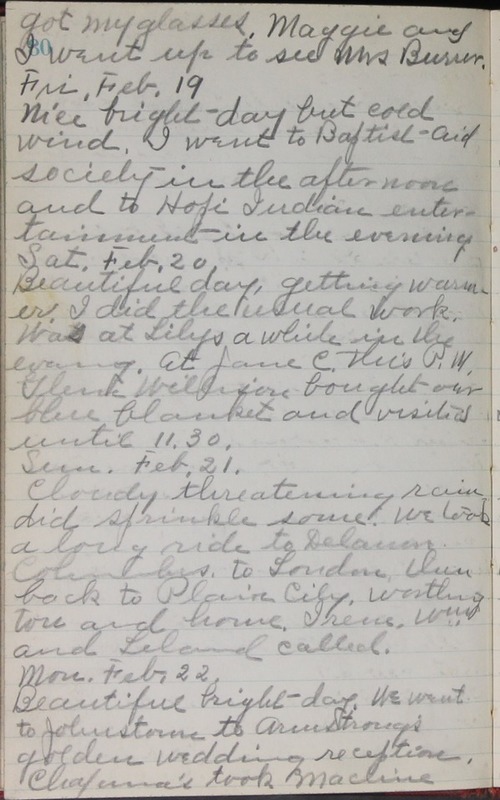 got my glasses. Maggie and
30
I went up to see Mrs Burrer.
Fri. Feb. 19
Nice bright day but cold
wind. I went to Baptist Aid
society in the afternoon
and to Hopi Indian enter-
tainment in the evening
Sat. Feb. 20.
Beautiful day, getting warm-
er. I did the usual work.
Was at Lilys a while in the
evang. At Jane C. this P. M.
Wilkinson bought our
blue blanket and visited
until 11.30.
Sun. Feb. 21.
Cloudy threatening rain
did sprinkle some. We took
a long ride to
Columbus. to London, then
back to Plain City, Worthing
ton and home. Irene,
and Leland called.
Mon. Feb. 22.
Beautiful bright day. We went
to Johnstown to Armstrongs
golden wedding reception.
took